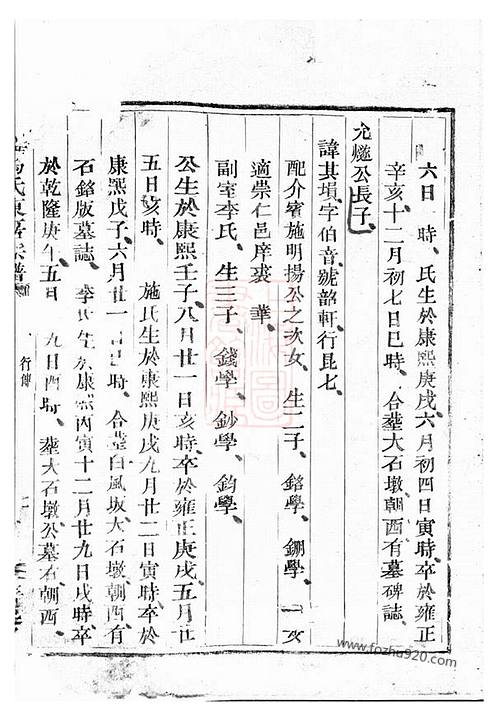 六日　時、氏生於康熙庚戌六月初四日寅時、卒於雍正
辛亥十二月初七日巳時、合塟大石墩朝西有墓碑誌、
元燧公長子、
諱其塤、字伯音、號韶軒、行昆七、
配介賓施明揚公之次女、生二子、銘學、鉶學、一女
適崇仁邑庠裘　華、
副室李氏、生三子、錢學、鈔學、鈞學、
公生於康熙壬子八月廿一日亥時、卒於雍正庚戌五月廿
五日亥時、施氏生於康熙庚戌九月廿二日寅時、卒於
康熙戊子六月廿一日　時、合塟白風坂大石墩、朝西有
石銘版墓誌、李氏生於康熙丙寅十二月廿九日戌時、卒
於乾隆庚午五月　九日酉時、塟大石墩公墓右朝西、
氏東房宗譜
行傳
www.fozhu920.com